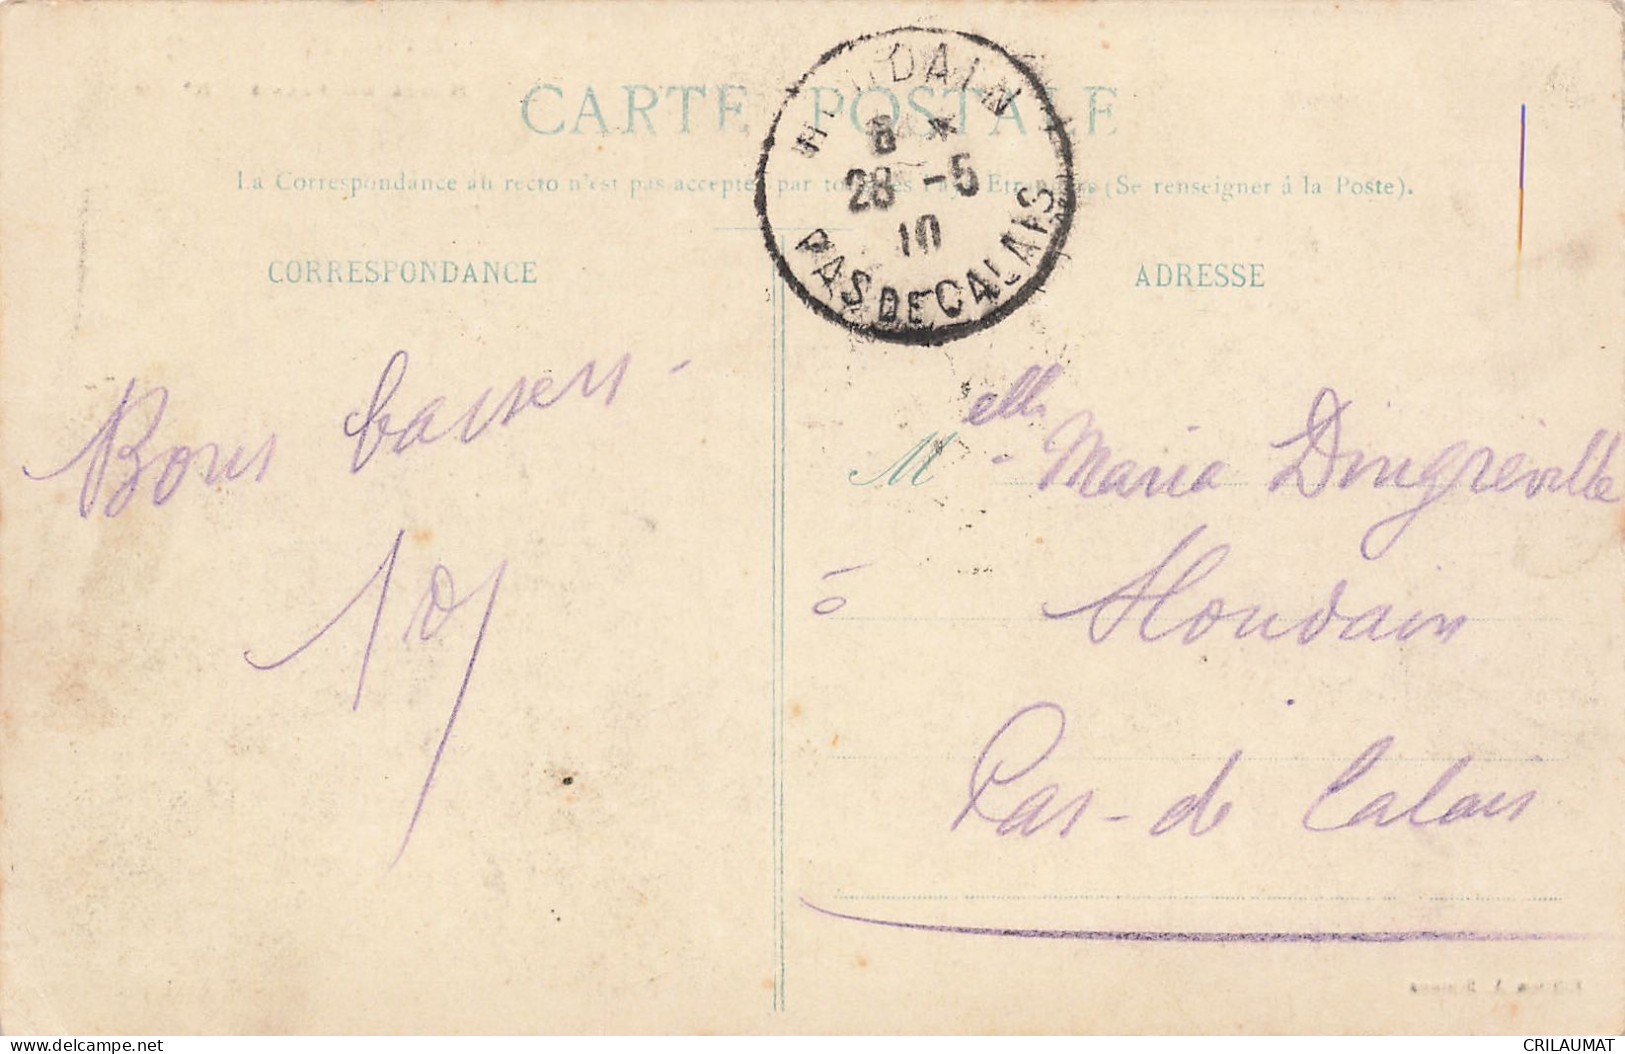 CARTE POSTALE
La Correspondance au recto n'est pas acceptée par tous les Pays Etrangers (Se renseigner à la Poste).
HOUDAIN
8 *
28 -5
10
PAS DE CALAIS
CORRESPONDANCE
ADRESSE
Bons baisers -
M elle Maria Dingreville
à Houdain
Pas-de Calais
www.delcampe.net
CRILAUMAT